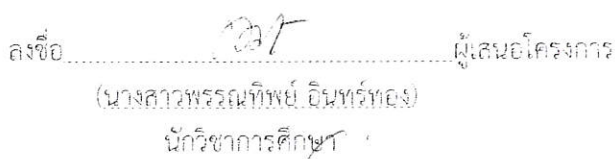 ลงชื่อ............................................................ผู้เสนอโครงการ
(นางสาวพรรณทิพย์ อินทร์ทอง)
นักวิชาการศึกษา